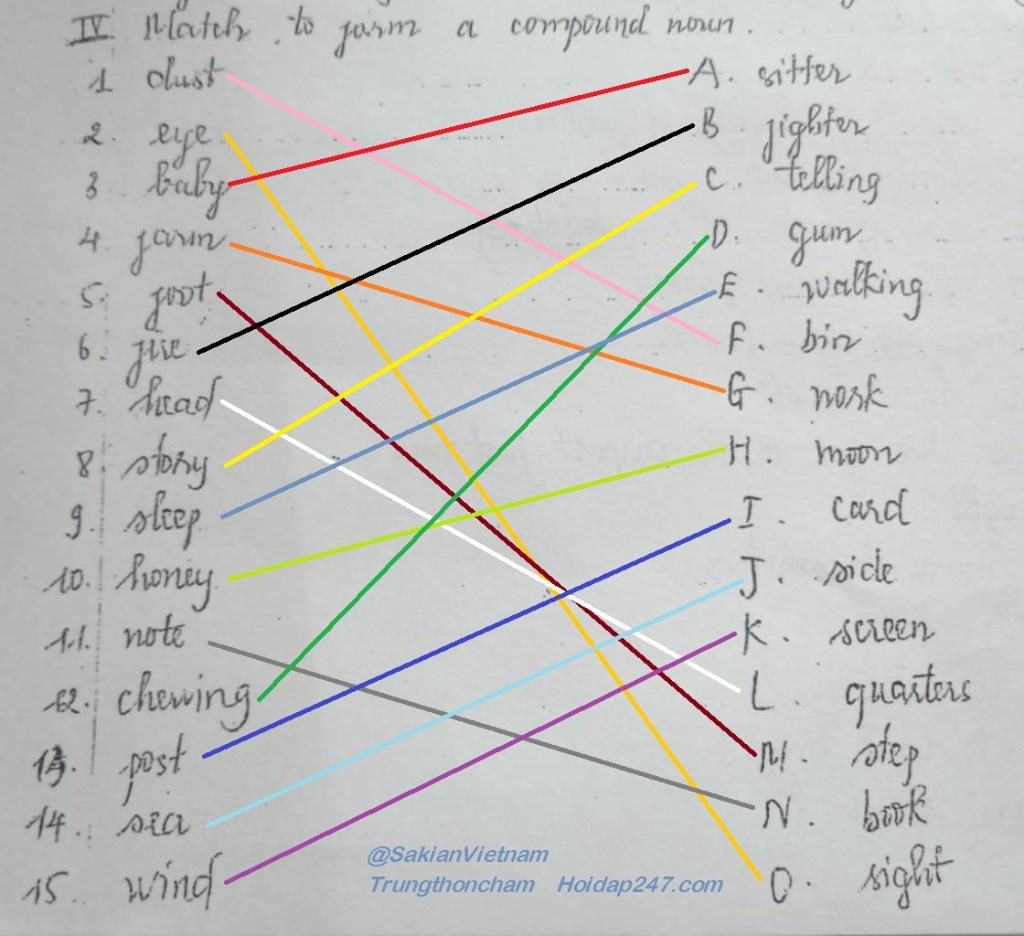 IV Match to form a compound noun.
1. dust A. sitter
2. eye B fighter
3 baby C. telling
4. farm D. gum
5. foot E. walking
6. fire F. bin
7. head G. work
8. story H. moon
9. sleep I. card
10. honey J. side
11. note K. screen
12. chewing L. quarters
13. post M. step
14. sea N. book
15. wind O. sight
@SakianVietnam
Trungthoncham Hoidap247.com